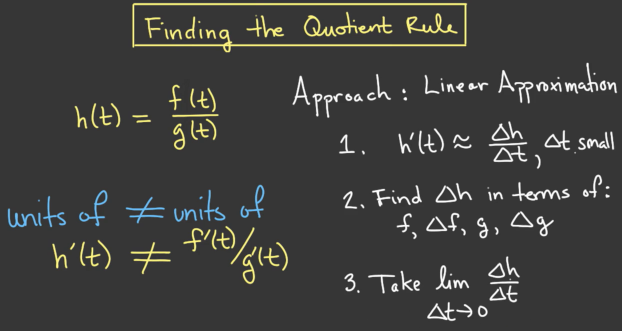 Finding the Quotient Rule
h(t) = f(t)/g(t)
units of ≠ units of
h'(t) ≠ f'(t)/g'(t)
Approach : Linear Approximation
1. h'(t) ≈ Δh/Δt, Δt small
2. Find Δh in terms of:
f, Δf, g, Δg
3. Take lim Δh/Δt
Δt→0